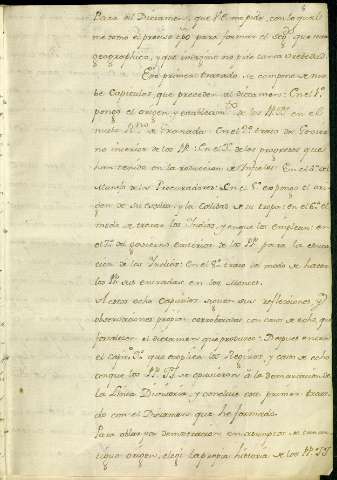 Para el Dictamen, que V.E. me pide, con lo qual
me tomo el preciso tpo para formar el segdo que sera
geographico, y que imagino no
Este primer tratado se compone de nue
be Capitulos, que preceden al dictamen: En el 1º
pongo el origen, y establecimto de los PP. en el
nuebo Rno de Granada: En el 2º trato del Govier
no interior de los PP: En el 3º de los progresos que
han tenido en la reduccion de Infieles: En el 4º del
Manejo de los Procuradores: En el 5º expongo el or
den de su Escolta, y la Calidad de su tropa: en el 6º el
modo de tratar los Indios, y en que los emplean: en
el 7º del govierno exterior de los PP. para la educa
cion de los Indios: En el 8º trato del modo de hacer
los PP. sus entradas, en los Montes.
A estos ocho Capitulos siguen sus reflecciones, y
observaciones propias corroboradas, con casos de echo, que
fortalecen el dictamen que produzco: Despues entra
el capitº 9º que explica los Reziros, y casos de echo
conque los PP. JJ. se opusieron à la demarcacion de
la Linea Divisoria, y concluie este primer trata
do con el Dictamen que he formado.
Para obrar por demostracion en asumptos de tan
tiguo origen, elegi la propia historia de los PP. JJ